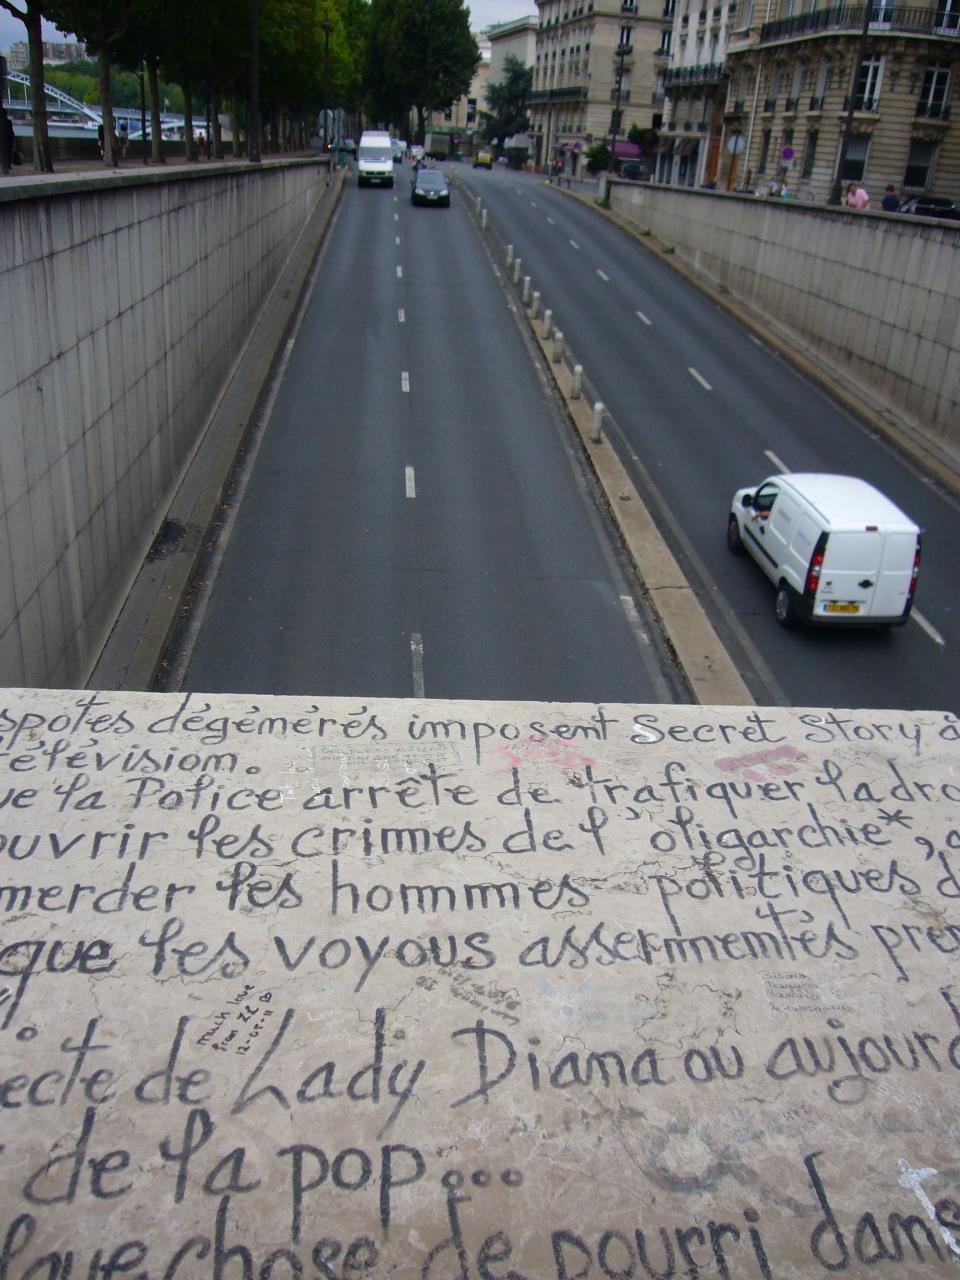 spotes dégénérés imposent Secret Story à
télévision.
ue la Police arrête de trafiquer la dro
ouvrir les crimes de l'oligarchie*, a
merder les hommes politiques d
que les voyous assermentés pren
much love
from ZLB
12-05-11
ecte de Lady Diana ou aujourd
de la pop...
lque chose de pourri dans